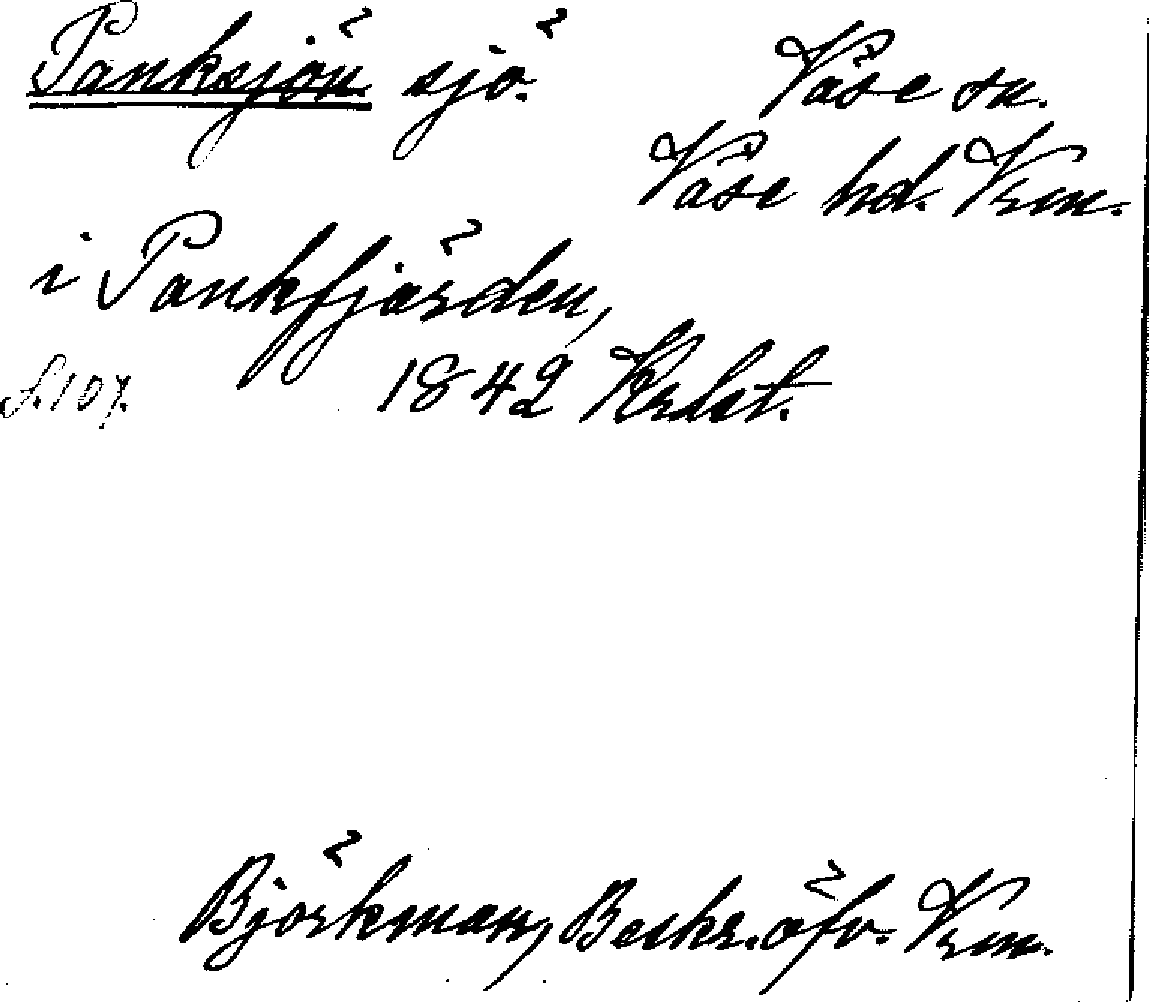 Panksjön sjö. Väse sn.
Väse hd. Vrm.
i Pankfjärden,
s. 107. 1842 Krlst.
Björkman, Beskr. öfv. Vrm.